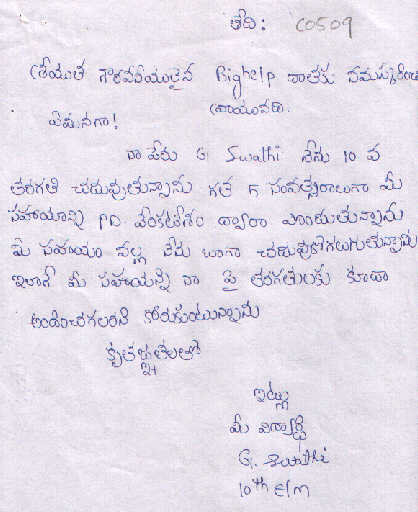 తేది: C0509
శ్రీయుత గౌరవనీయులైన Bighelp దాతకు నమస్కరించి
వ్రాయునది.
ఏమనగా!
నా పేరు G. Swathi నేను 10 వ
తరగతి చదువుతున్నాను గత 5 సంవత్సరాలుగా మీ
సహాయాన్ని PD వెంకటేశం ద్వారా పొందుతున్నాను
మీ సహాయం వల్ల నేను బాగా చదువుకోగలుగుతున్నాను
ఇలాగే మీ సహాయాన్ని నా పై తరగతులకు కూడా
అందించగలరని కోరుకుంటున్నాను
కృతజ్ఞతలతో
ఇట్లు
మీ విద్యార్థి
G. Swathi
10th E/m